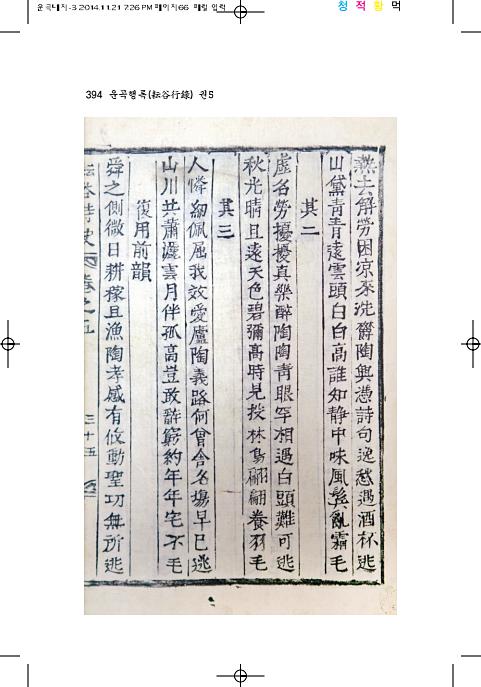 운곡내지-3 2014.11.21 7:26 PM 페이지66 매킨 입력
청 적 황 먹
394 운곡행록(耘谷行錄) 권5
熱去解勞困凉來洗欝陶興憑詩句逸愁遇酒杯逃
山黛靑靑遠雲頭白白高誰知静中味風鬂亂霜毛
其二
虛名勞擾擾真樂醉陶陶靑眼罕相遇白頭難可逃
秋光晴且遠天色碧彌髙時見投林鳥翩翩養羽毛
其三
人憐紉佩屈我效愛廬陶義路何曾舍名塲早已逃
山川共蕭灑雲月伴孤高豈敢辭窮約年年宅不毛
復用前韻
舜之側微日耕稼且漁陶孝感有攸動聖功無所逃
耘谷詩史 卷之五 三十五